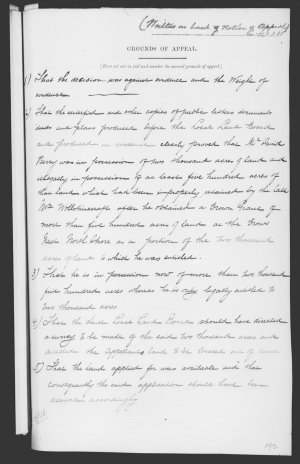 (Written on back of Notice of Appeal)
GROUNDS OF APPEAL.
[Here set out in full and number the several grounds of appeal.]
1) That the decision was against evidence and the Weight of
evidence
2) That the and other copies of public letters documents
deeds and plans produced before the Local Land Board
and produced in evidence clearly proved that Mr David
Perry was in possession of two thousand acres of land and
illegally in possession of at least five hundred acres of
that land which had been improperly retained by the late
Wm after he obtained a Crown Grant of
more than five hundred acres of land at the
North Shore as a portion of the two thousand
acres of land to which he was entitled.
3) That he is in possession now of more than two thousand
five hundred acres whereas he is only legally entitled to
two thousand acres
4) That the said Local Land Board should have directed
a survey to be made of the said two thousand acres and
decided the Appellants land to be located out of same
5) That the land applied for was available and that
consequently the said application should have been
allowed accordingly
192